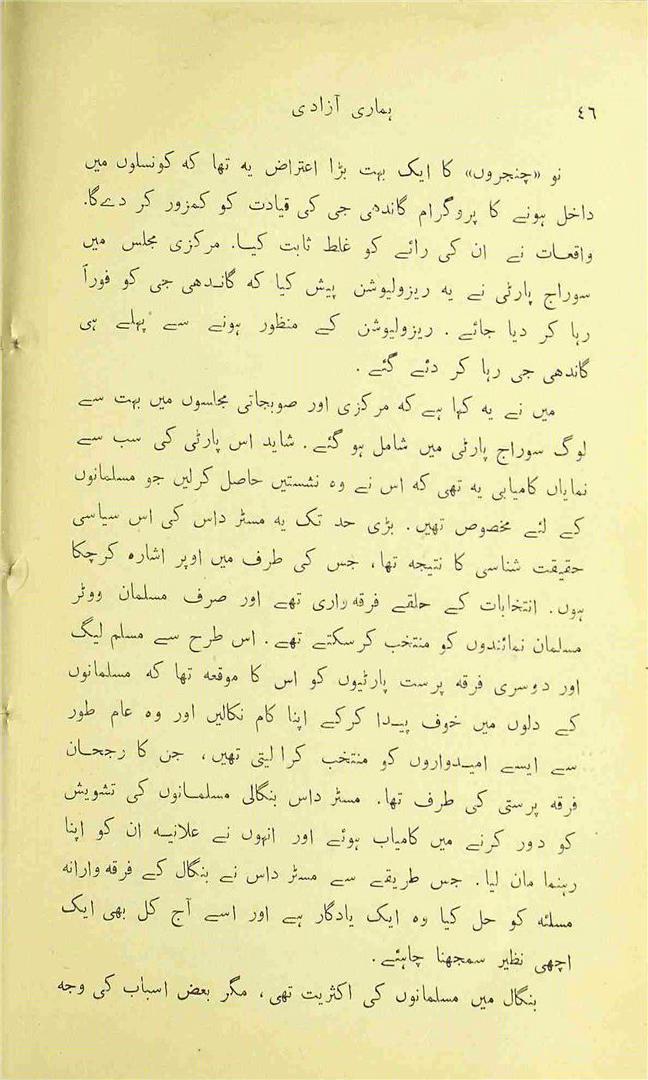 ٤٦
ہماری آزادی
نو «چنجروں» کا ایک بہت بڑا اعتراض یہ تھا کہ کونسلوں میں
داخل ہونے کا پروگرام گاندھی جی کی قیادت کو کمزور کر دےگا.
واقعات نے ان کی رائے کو غلط ثابت کیا. مرکزی مجلس میں
سوراج پارٹی نے یہ ریزولیوشن پیش کیا کہ گاندھی جی کو فوراً
رہا کر دیا جائے . ریزولیوشن کے منظور ہونے سے پہلے ہی
گاندھی جی رہا کر دئے گئے .
میں نے یہ کہا ہے کہ مرکزی اور صوبجاتی مجلسوں میں بہت سے
لوگ سوراج پارٹی میں شامل ہو گئے . شاید اس پارٹی کی سب سے
نمایاں کامیابی یہ تھی کہ اس نے وہ نشستیں حاصل کرلیں جو مسلمانوں
کے لئے مخصوص تھیں. بڑی حد تک یہ مسٹر داس کی اس سیاسی
حقیقت شناسی کا نتیجہ تھا، جس کی طرف میں اوپر اشارہ کرچکا
ہوں. انتخابات کے حلقے فرقہ‌واری تھے اور صرف مسلمان ووٹر
مسلمان نمائندوں کو منتخب کرسکتے تھے . اس طرح سے مسلم لیگ
اور دوسری فرقہ پرست پارٹیوں کو اس کا موقعہ تھا کہ مسلمانوں
کے دلوں میں خوف پیدا کرکے اپنا کام نکالیں اور وہ عام طور
سے ایسے امیدواروں کو منتخب کرا لیتی تھیں، جن کا رجحان
فرقہ پرستی کی طرف تھا. مسٹر داس بنگالی مسلمانوں کی تشویش
کو دور کرنے میں کامیاب ہوئے اور انہوں نے علانیہ ان کو اپنا
رہنما مان لیا. جس طریقے سے مسٹر داس نے بنگال کے فرقہ وارانہ
مسئلہ کو حل کیا وہ ایک یادگار ہے اور اسے آج کل بھی ایک
اچھی نظیر سمجھنا چاہئے .
بنگال میں مسلمانوں کی اکثریت تھی، مگر بعض اسباب کی وجہ